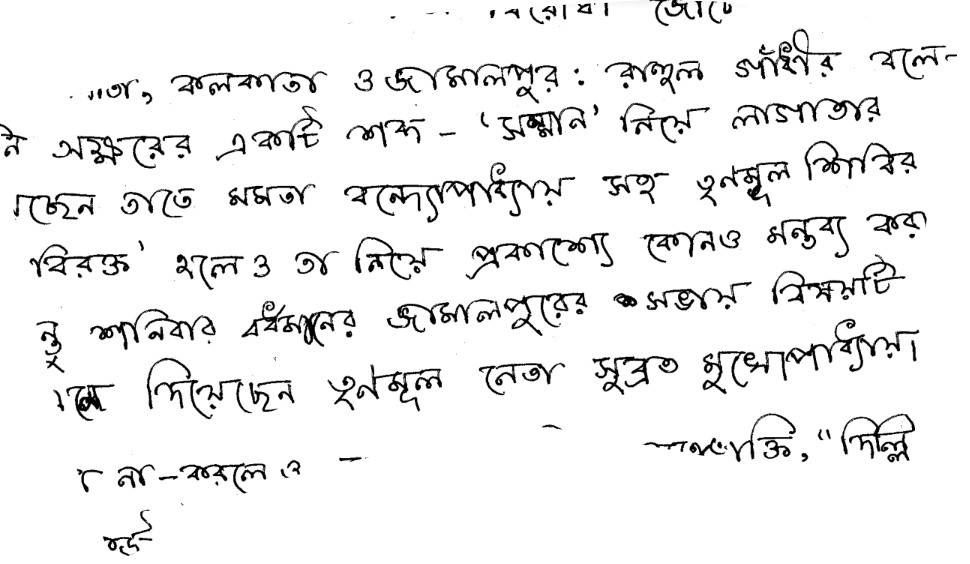 বিরোধী জোটে
কলকাতা ও জামালপুর: রাহুল গাঁধীর বলে-
অক্ষরের একটি শব্দ - 'সম্মান' নিয়ে লাগাতার
চ্ছেন তাতে মমতা বন্দ্যোপাধ্যায় সহ তৃণমূল শিবির
বিরক্ত' হলেও তা নিয়ে প্রকাশ্যে কোনও মন্তব্য করা
ন্তু শনিবার বর্ধমানের জামালপুরের সভায় বিষয়টি
দিয়েছেন তৃণমূল নেতা সুব্রত মুখোপাধ্যায়।
না-করলেও - "দিল্লি